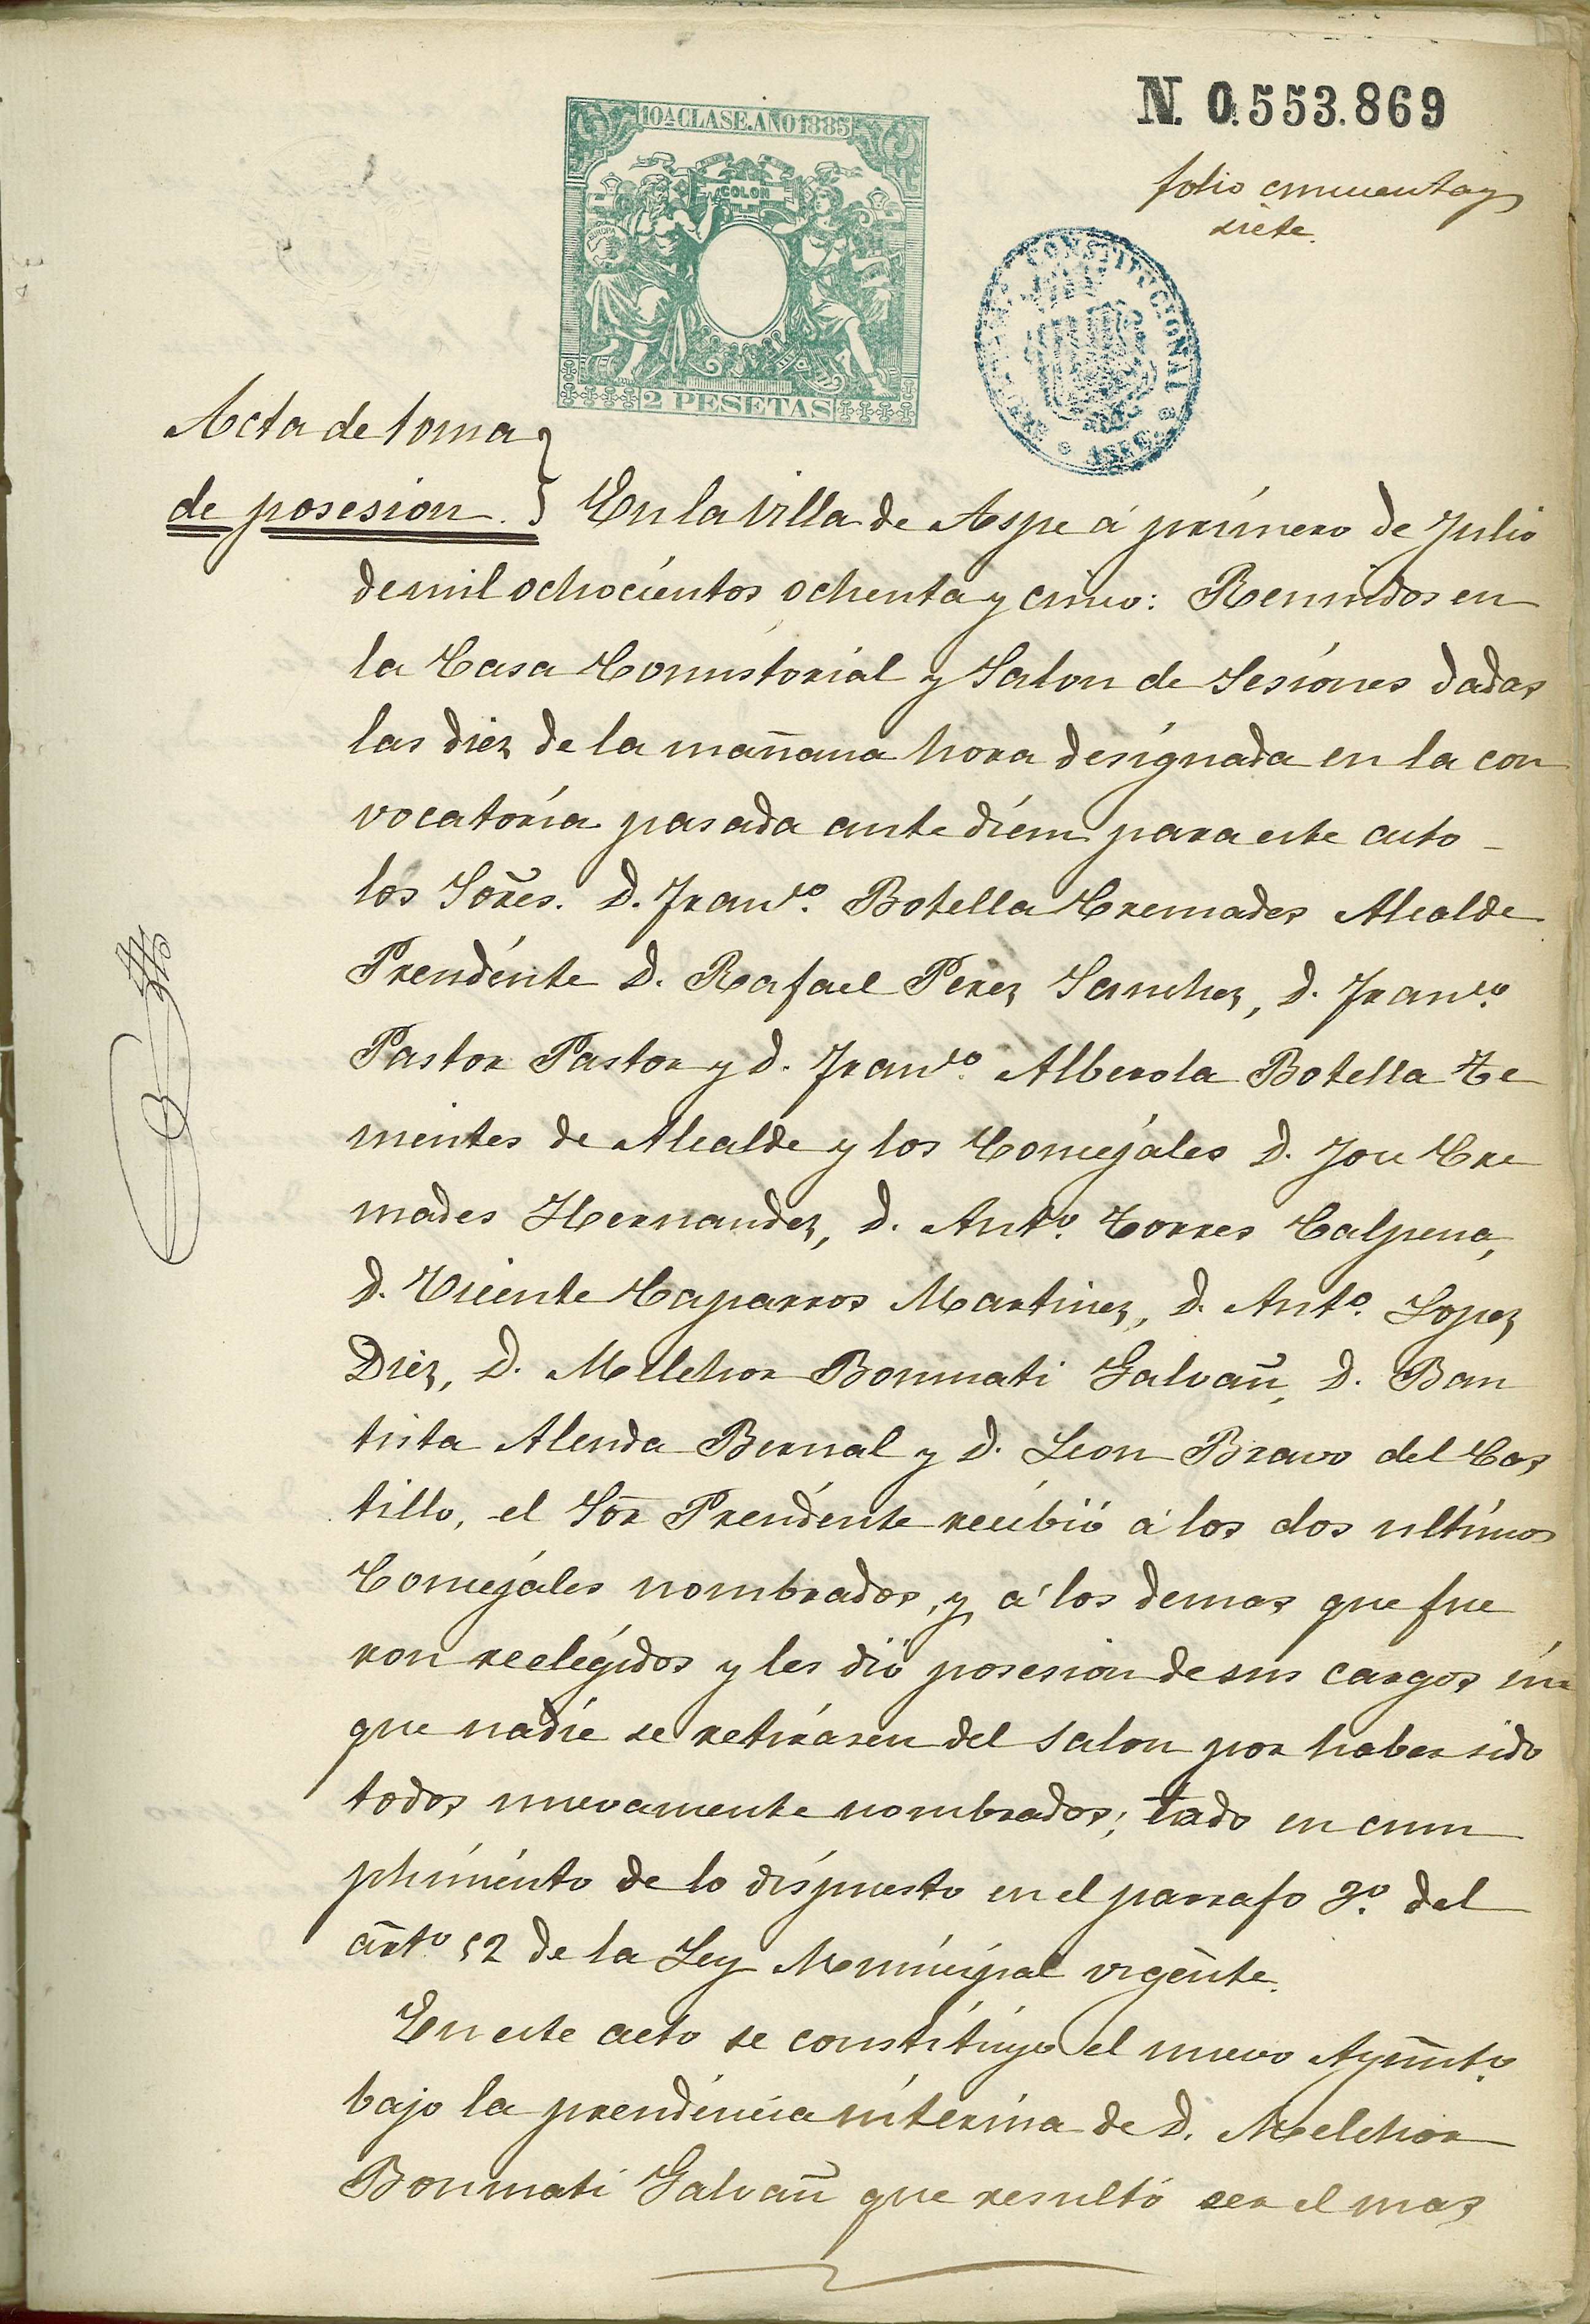 N. 0.553.869
10A CLASE. AÑO 1885
folio cincuenta y
siete.
COLON
EUROPA
CONSTITUCIONAL
ASPE
2 PESETAS
Acta de toma
de posesion.
En la villa de Aspe á primero de Julio
de mil ochocientos ochenta y cinco: Reunidos en
la Casa Consistorial y Salon de Sesiones dadas
las diez de la mañana hora designada en la con
vocatoria pasada ante diem para este acto
los Sores. D. Franco. Botella Cremades Alcalde
Presidente D. Rafael Perez Sanchez, D. Franco.
Pastor Pastor y D. Franco. Alberola Botella Te
nientes de Alcalde y los Concejales D. Jose Cre
mades Hernandez, D. Anto. Torres Calpena,
D. Vicente Caparros Martinez, D. Anto. Lopez
Diez, D. Melchor Bonmati Galvañ, D. Bau
tista Alenda Bernal y D. Leon Bravo del Cas
tillo, el Sor Presidente recibió á los dos ultimos
Concejales nombrados, y á los demas que fue
ron reelegidos y les dió posesion de sus cargos sin
que nadie se retirasen del salon por haber sido
todos nuevamente nombrados; todo en cum
plimiento de lo dispuesto en el parrafo 3º. del
arto. 52 de la Ley Municipal vigente.
En este acto se constituyo el nuevo Ayunto.
bajo la presidencia interina de D. Melchor
Bonmati Galvañ que resultó ser el mas